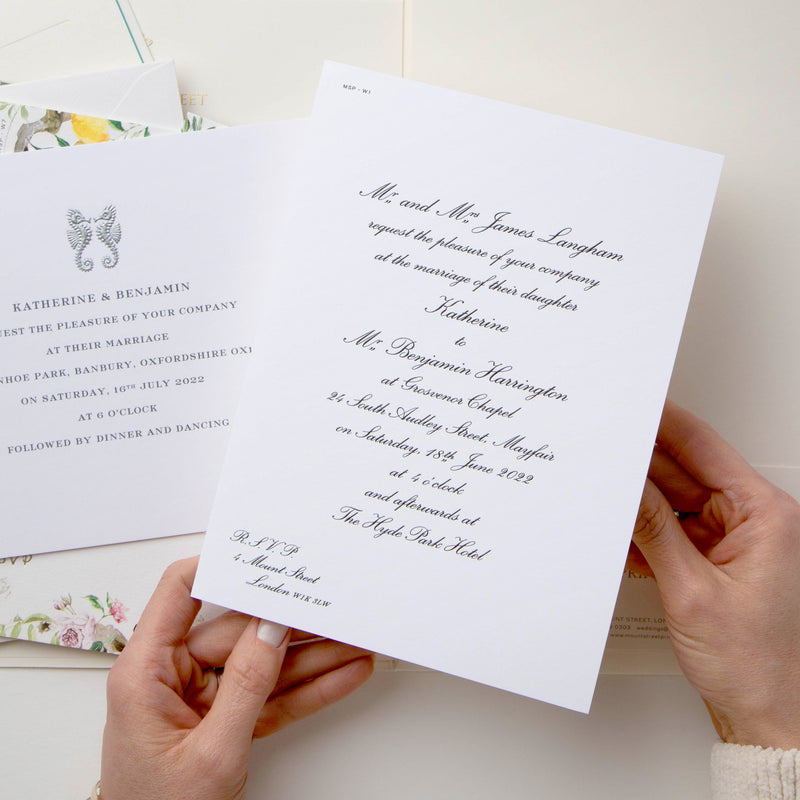 MSP - W1
Mr. and Mrs. James Langham
request the pleasure of your company
at the marriage of their daughter
Katherine
to
Mr. Benjamin Harrington
at Grosvenor Chapel
24 South Audley Street, Mayfair
on Saturday, 18th June 2022
at 4 o'clock
and afterwards at
The Hyde Park Hotel
R.S.V.P
4 Mount Street
London W1K 3LW
KATHERINE & BENJAMIN
THE PLEASURE OF YOUR COMPANY
AT THEIR MARRIAGE
PARK, BANBURY, OXFORDSHIRE
ON SATURDAY, 16TH JULY 2022
AT 6 O'CLOCK
FOLLOWED BY DINNER AND DANCING
MSP - W7